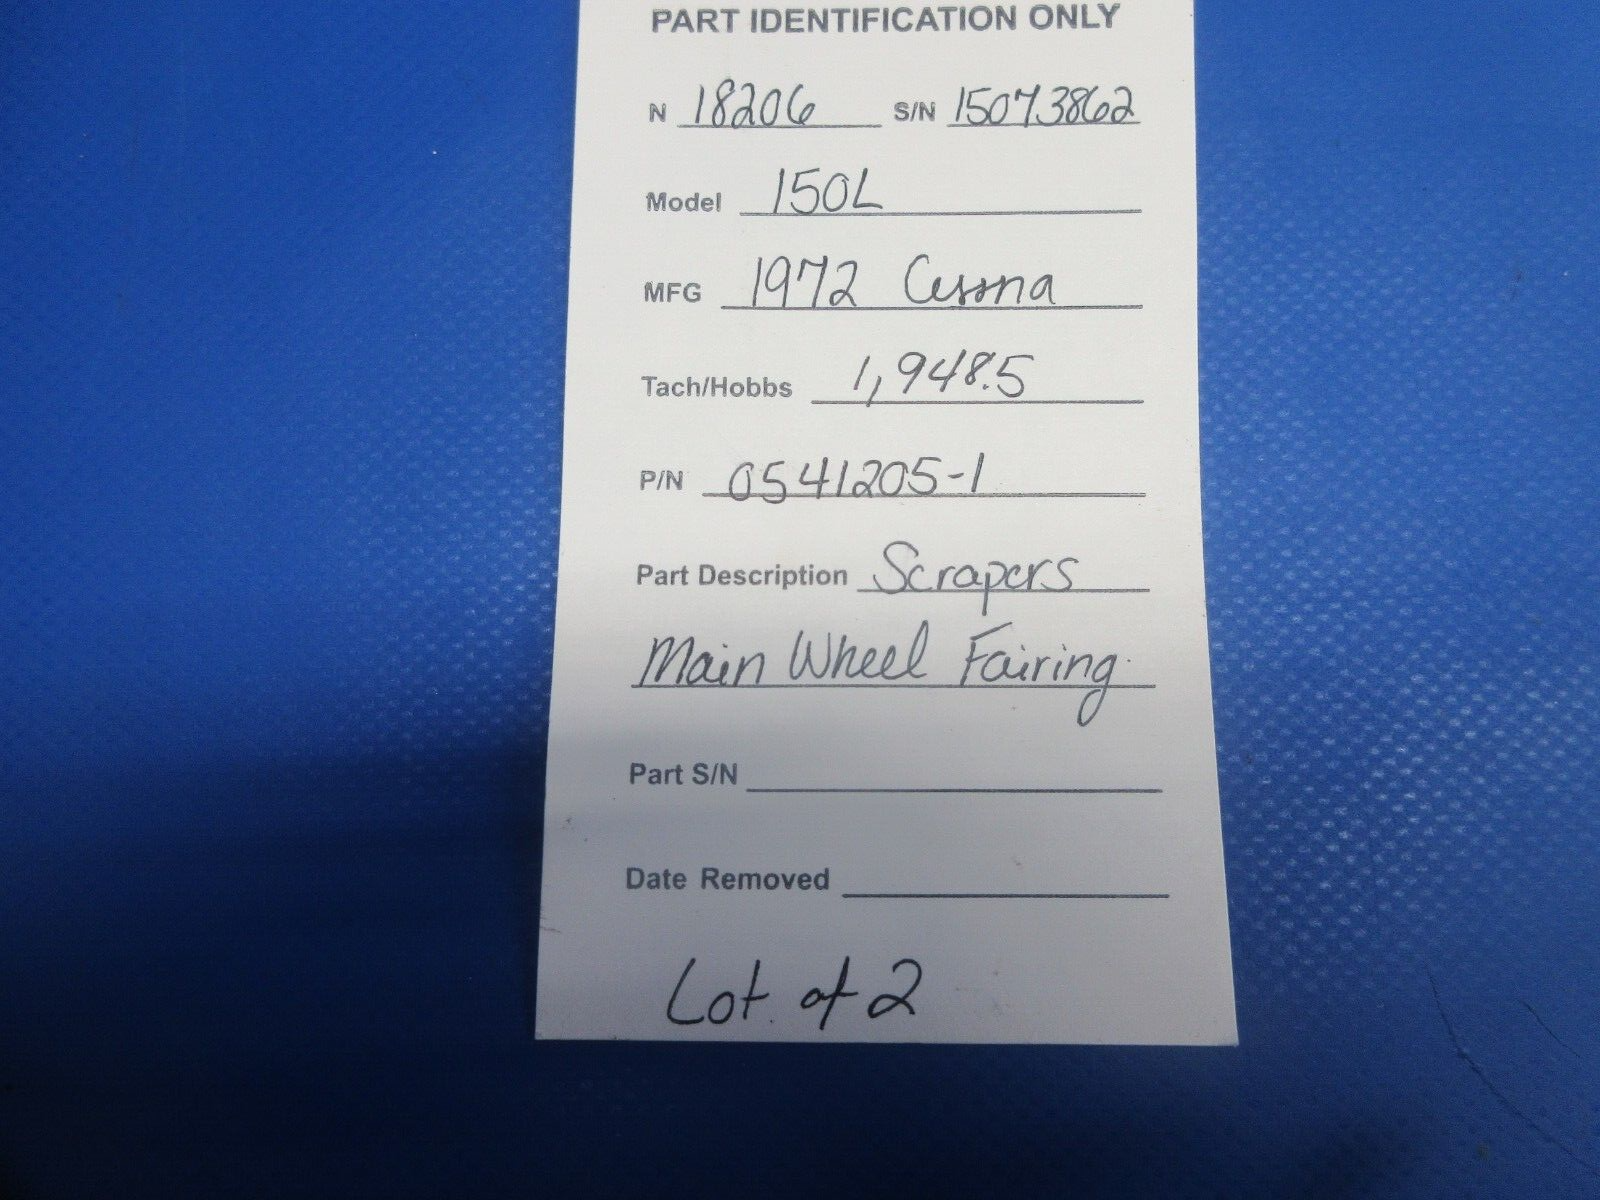 PART IDENTIFICATION ONLY
N 18206 S/N 15073862
Model 150L
MFG 1972 Cessna
Tach/Hobbs 1,948.5
P/N 0541205-1
Part Description Scrapers
Main Wheel Fairing
Part S/N
Date Removed
Lot of 2